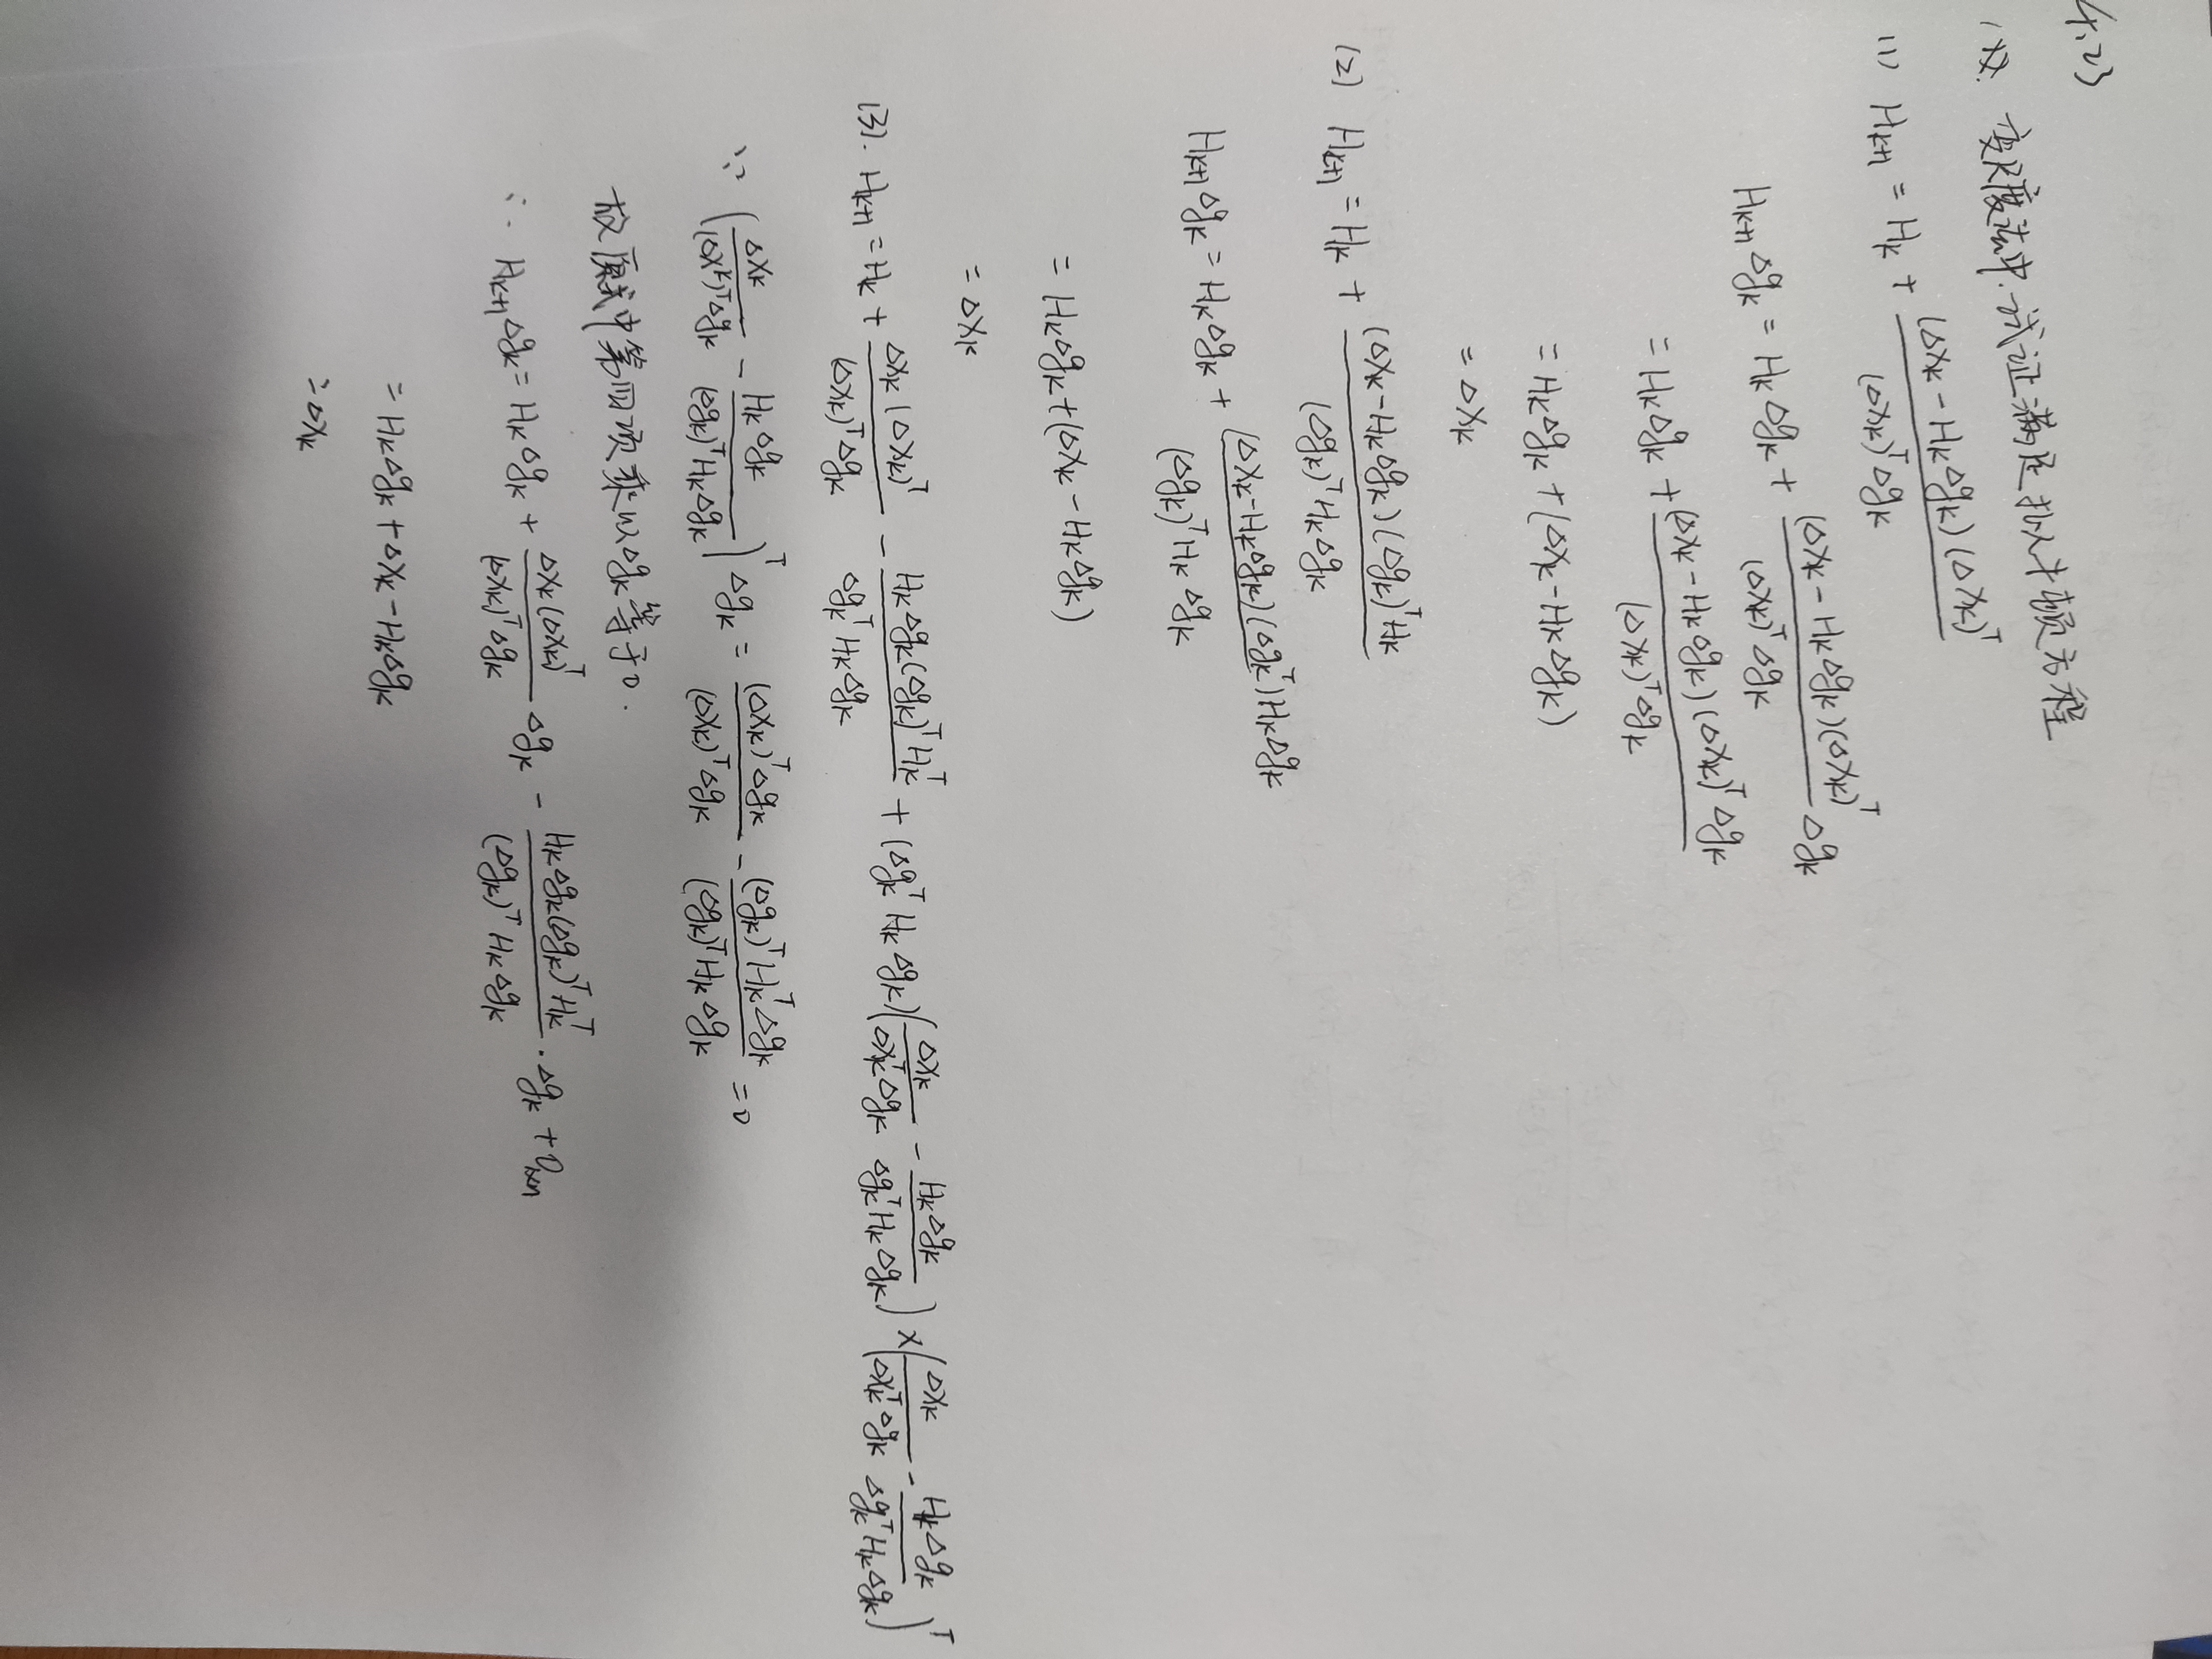 4.23
1、 变尺度法中，试证满足拟牛顿方程
(1) H_{k+1} = H_k + \frac{(Δx_k - H_kΔg_k)(Δx_k)^T}{(Δx_k)^TΔg_k}
H_{k+1}Δg_k = H_kΔg_k + \frac{(Δx_k - H_kΔg_k)(Δx_k)^T}{(Δx_k)^TΔg_k} Δg_k
= H_kΔg_k + \frac{(Δx_k - H_kΔg_k)(Δx_k)^TΔg_k}{(Δx_k)^TΔg_k}
= H_kΔg_k + (Δx_k - H_kΔg_k)
= Δx_k
(2) H_{k+1} = H_k + \frac{(Δx_k - H_kΔg_k)(Δg_k)^TH_k}{(Δg_k)^TH_kΔg_k}
H_{k+1}Δg_k = H_kΔg_k + \frac{(Δx_k - H_kΔg_k)(Δg_k)^TH_kΔg_k}{(Δg_k)^TH_kΔg_k}
= H_kΔg_k + (Δx_k - H_kΔg_k)
= Δx_k
(3). H_{k+1} = H_k + \frac{Δx_k(Δx_k)^T}{(Δx_k)^TΔg_k} - \frac{H_kΔg_k(Δg_k)^TH_k^T}{Δg_k^TH_kΔg_k} + (Δg_k^TH_kΔg_k)(\frac{Δx_k}{Δx_k^TΔg_k} - \frac{H_kΔg_k}{Δg_k^TH_kΔg_k}) × (\frac{Δx_k}{Δx_k^TΔg_k} - \frac{H_kΔg_k}{Δg_k^TH_kΔg_k})^T
∵ (\frac{Δx_k}{(Δx_k)^TΔg_k} - \frac{H_kΔg_k}{(Δg_k)^TH_kΔg_k})^T Δg_k = \frac{(Δx_k)^TΔg_k}{(Δx_k)^TΔg_k} - \frac{(Δg_k)^TH_k^TΔg_k}{(Δg_k)^TH_kΔg_k} = 0
故原式中第四项乘以Δg_k等于0.
∴ H_{k+1}Δg_k = H_kΔg_k + \frac{Δx_k(Δx_k)^T}{(Δx_k)^TΔg_k} Δg_k - \frac{H_kΔg_k(Δg_k)^TH_k^T}{(Δg_k)^TH_kΔg_k} · Δg_k + 0_{n×n}
= H_kΔg_k + Δx_k - H_kΔg_k
= Δx_k